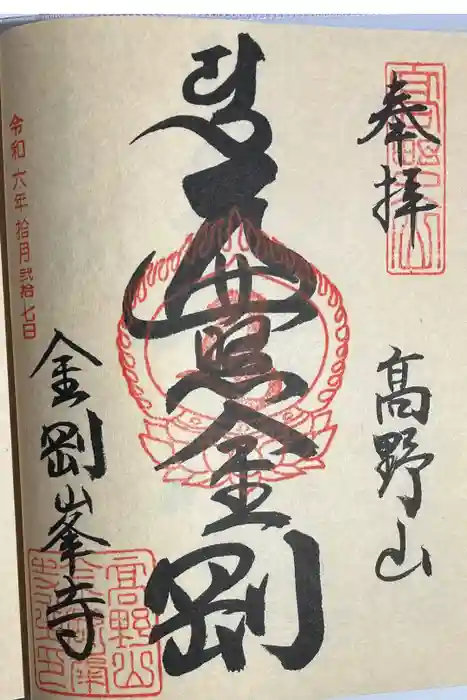 奉拝
髙野山
遍照金剛
令和六年拾月弐拾七日
金剛峯寺
高野山